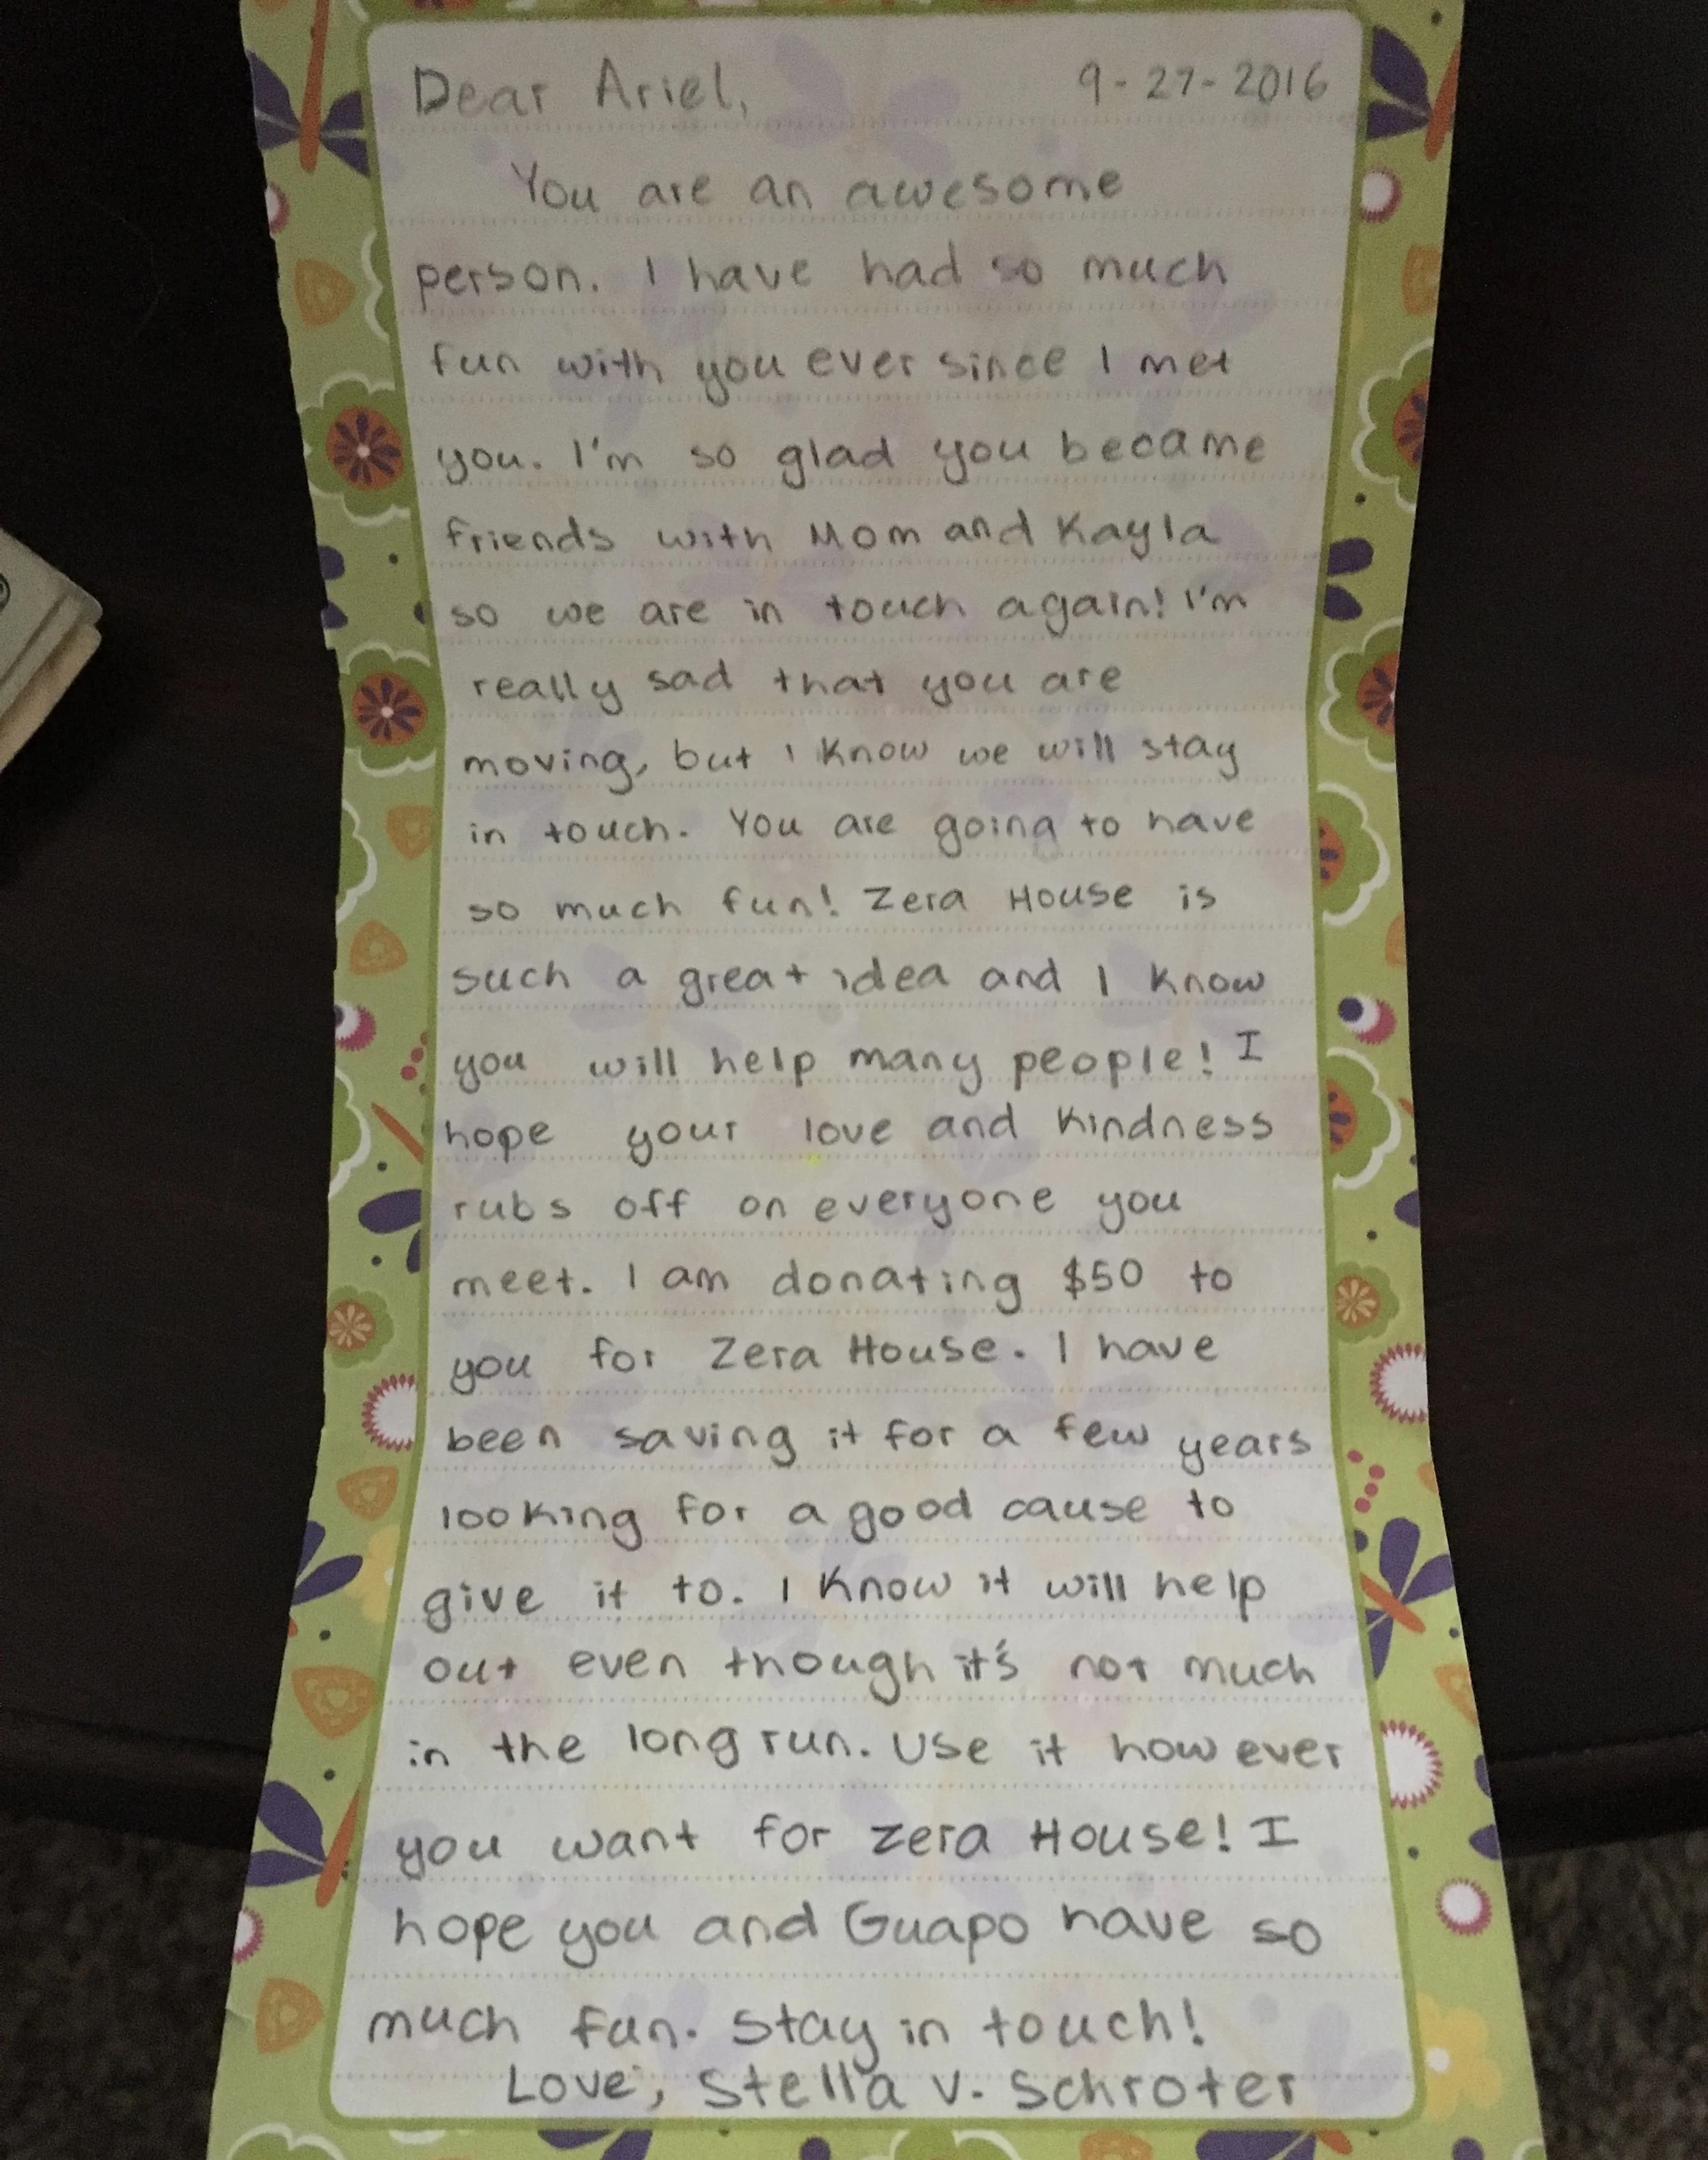 Dear Ariel, 9-27-2016
You are an awesome
person. I have had so much
fun with you ever since I met
you. I'm so glad you became
friends with Mom and Kayla
so we are in touch again! I'm
really sad that you are
moving, but I know we will stay
in touch. You are going to have
so much fun! Zera House is
such a great idea and I know
you will help many people! I
hope your love and kindness
rubs off on everyone you
meet. I am donating $50 to
you for Zera House. I have
been saving it for a few years
looking for a good cause to
give it to. I know it will help
out even though it's not much
in the long run. Use it however
you want for Zera House! I
hope you and Guapo have so
much fun. Stay in touch!
Love, Stella V. Schroter